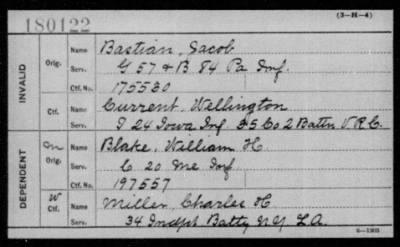 180122
(3-H-4)
INVALID
Orig.
Name Bastian, Jacob
Serv. G 57 & B 84 Pa Inf.
Ctf. No. 175530
Ctf.
Name Current, Wellington
Serv. I 24 Iowa Inf 35 Co 2 Battn V.R.C.
DEPENDENT
Orig.
Name Blake, William H
Serv. C 20 Me Inf
Ctf. No. 197557
W
Ctf.
Name Miller, Charles H
Serv. 34 Indpt Batty N.Y. L.A.